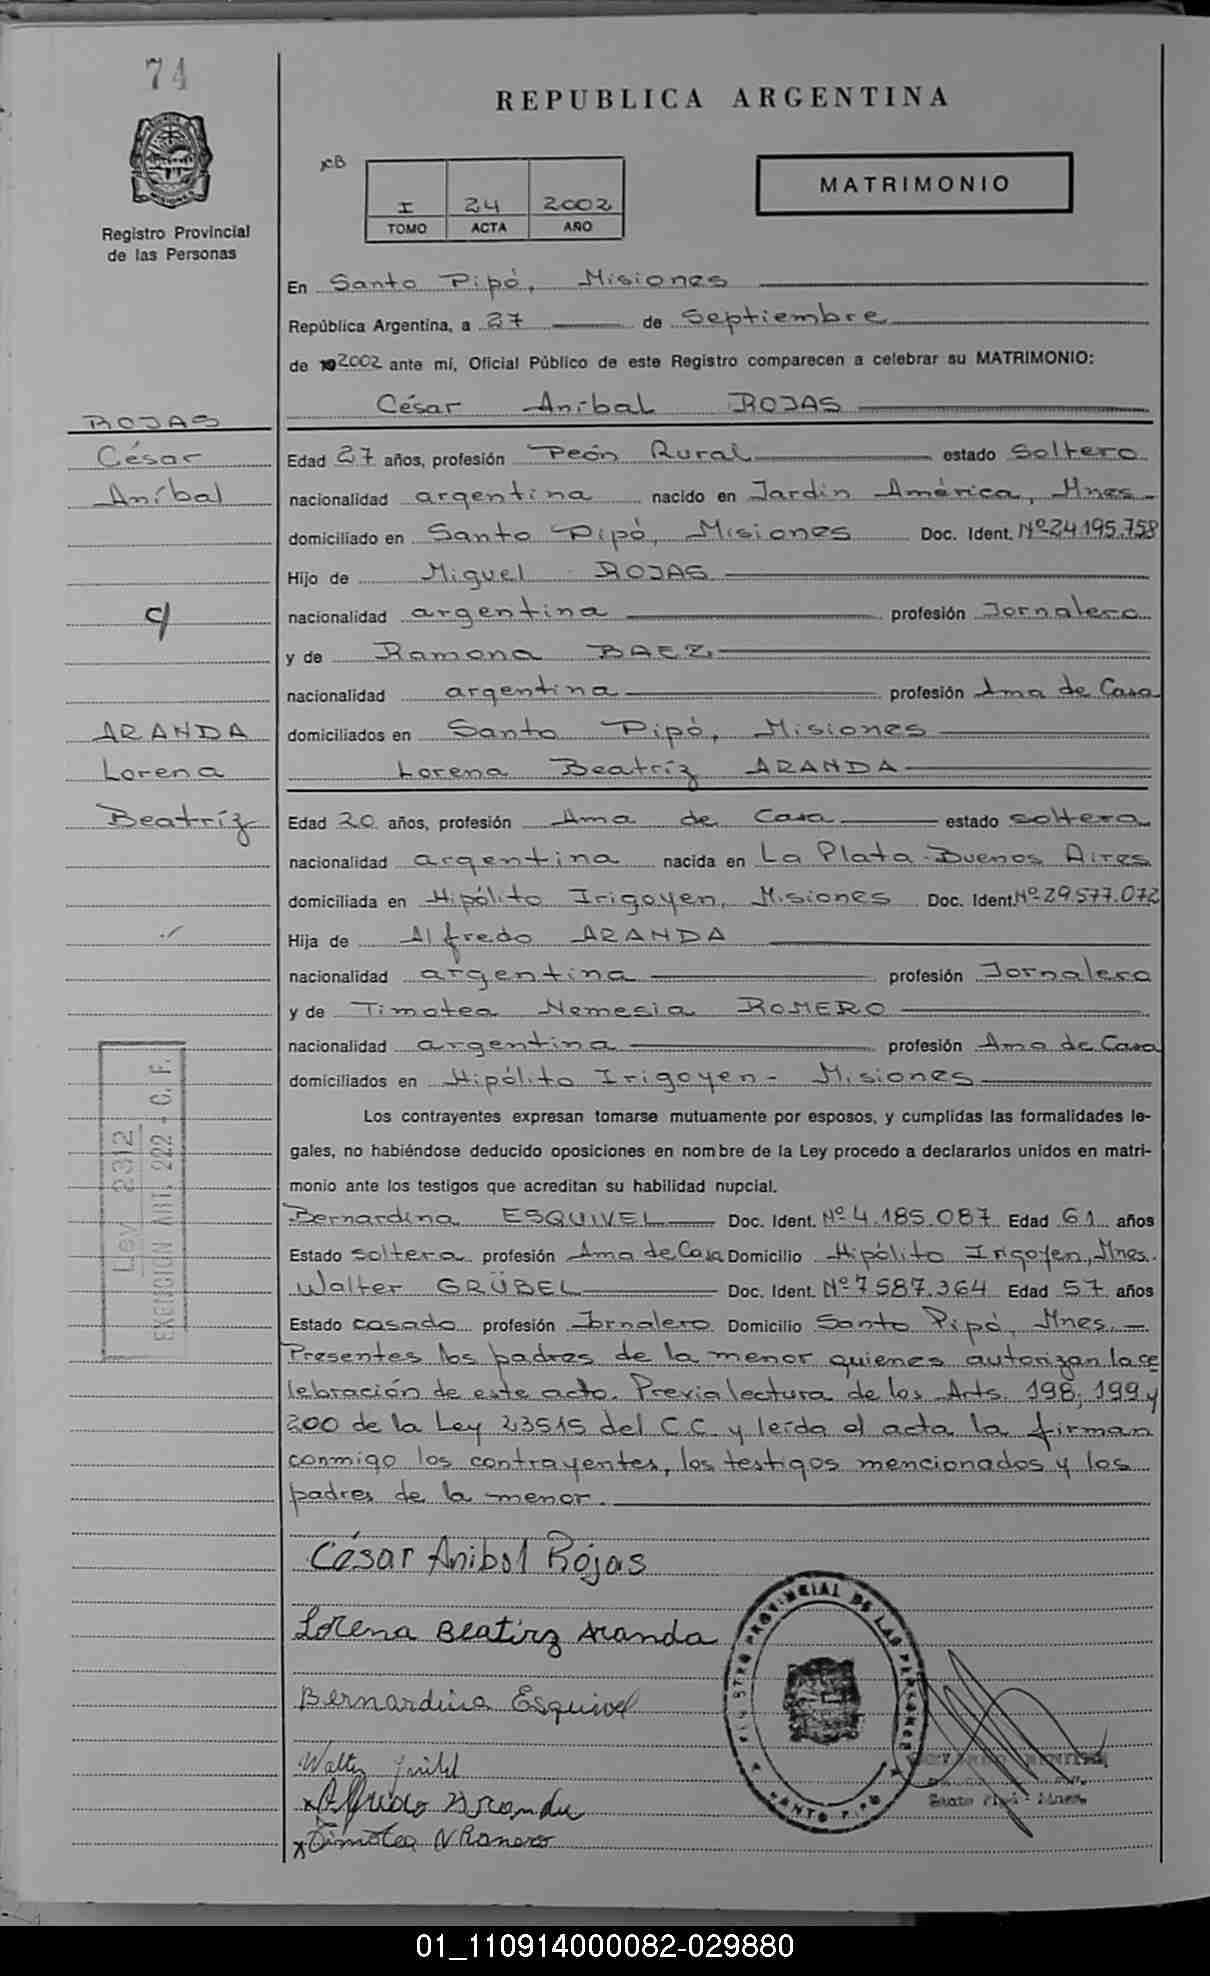 74
REPUBLICA ARGENTINA
MATRIMONIO
I 24 2002
TOMO ACTA AÑO
Registro Provincial
de las Personas
En Santo Pipó, Misiones
República Argentina, a 27 de Septiembre
de 2002 ante mí, Oficial Público de este Registro comparecen a celebrar su MATRIMONIO:
César Aníbal ROJAS
ROJAS
César
Aníbal
c/
ARANDA
Lorena
Beatríz
Edad 27 años, profesión Peón Rural estado Soltero
nacionalidad argentina nacido en Jardín América, Mnes-
domiciliado en Santo Pipó, Misiones Doc. Ident. Nº 24.195.758
Hijo de Miguel ROJAS
nacionalidad argentina profesión Jornalero
y de Ramona BAEZ.
nacionalidad argentina profesión Ama de Casa
domiciliados en Santo Pipó, Misiones
Lorena Beatríz ARANDA
Edad 20 años, profesión Ama de Casa estado soltera
nacionalidad argentina nacida en La Plata-Buenos Aires
domiciliada en Hipólito Irigoyen, Misiones Doc. Ident. Nº 29.577.072
Hija de Alfredo ARANDA
nacionalidad argentina profesión Jornalero
y de Timotea Nemesia ROMERO
nacionalidad argentina profesión Ama de Casa
domiciliados en Hipólito Irigoyen- Misiones
Los contrayentes expresan tomarse mutuamente por esposos, y cumplidas las formalidades le-
gales, no habiéndose deducido oposiciones en nombre de la Ley procedo a declararlos unidos en matri-
monio ante los testigos que acreditan su habilidad nupcial.
Bernardina ESQUIVEL Doc. Ident. Nº 4.185.087 Edad 61 años
Estado soltera profesión Ama de Casa Domicilio Hipólito Irigoyen, Mnes.
Walter GRÜBEL Doc. Ident. Nº 7.587.364 Edad 57 años
Estado casado profesión Jornalero Domicilio Santo Pipó, Mnes.-
Presentes los padres de la menor quienes autorizan la ce
lebración de este acto. Previa lectura de los Arts. 198, 199 y
200 de la Ley 23515 del C.C. y leída el acta la firman
conmigo los contrayentes, los testigos mencionados y los
padres de la menor.
Ley 2312
EXENCION ART. 222 - C. F.
César Anibal Rojas
Lorena Beatirz Aranda
Bernardina Esquivel
Walter
x Alfredo Aranda
x Timotea N Romero
REGISTRO PROVINCIAL DE LAS PERSONAS
SANTO PIPO
01_110914000082-029880